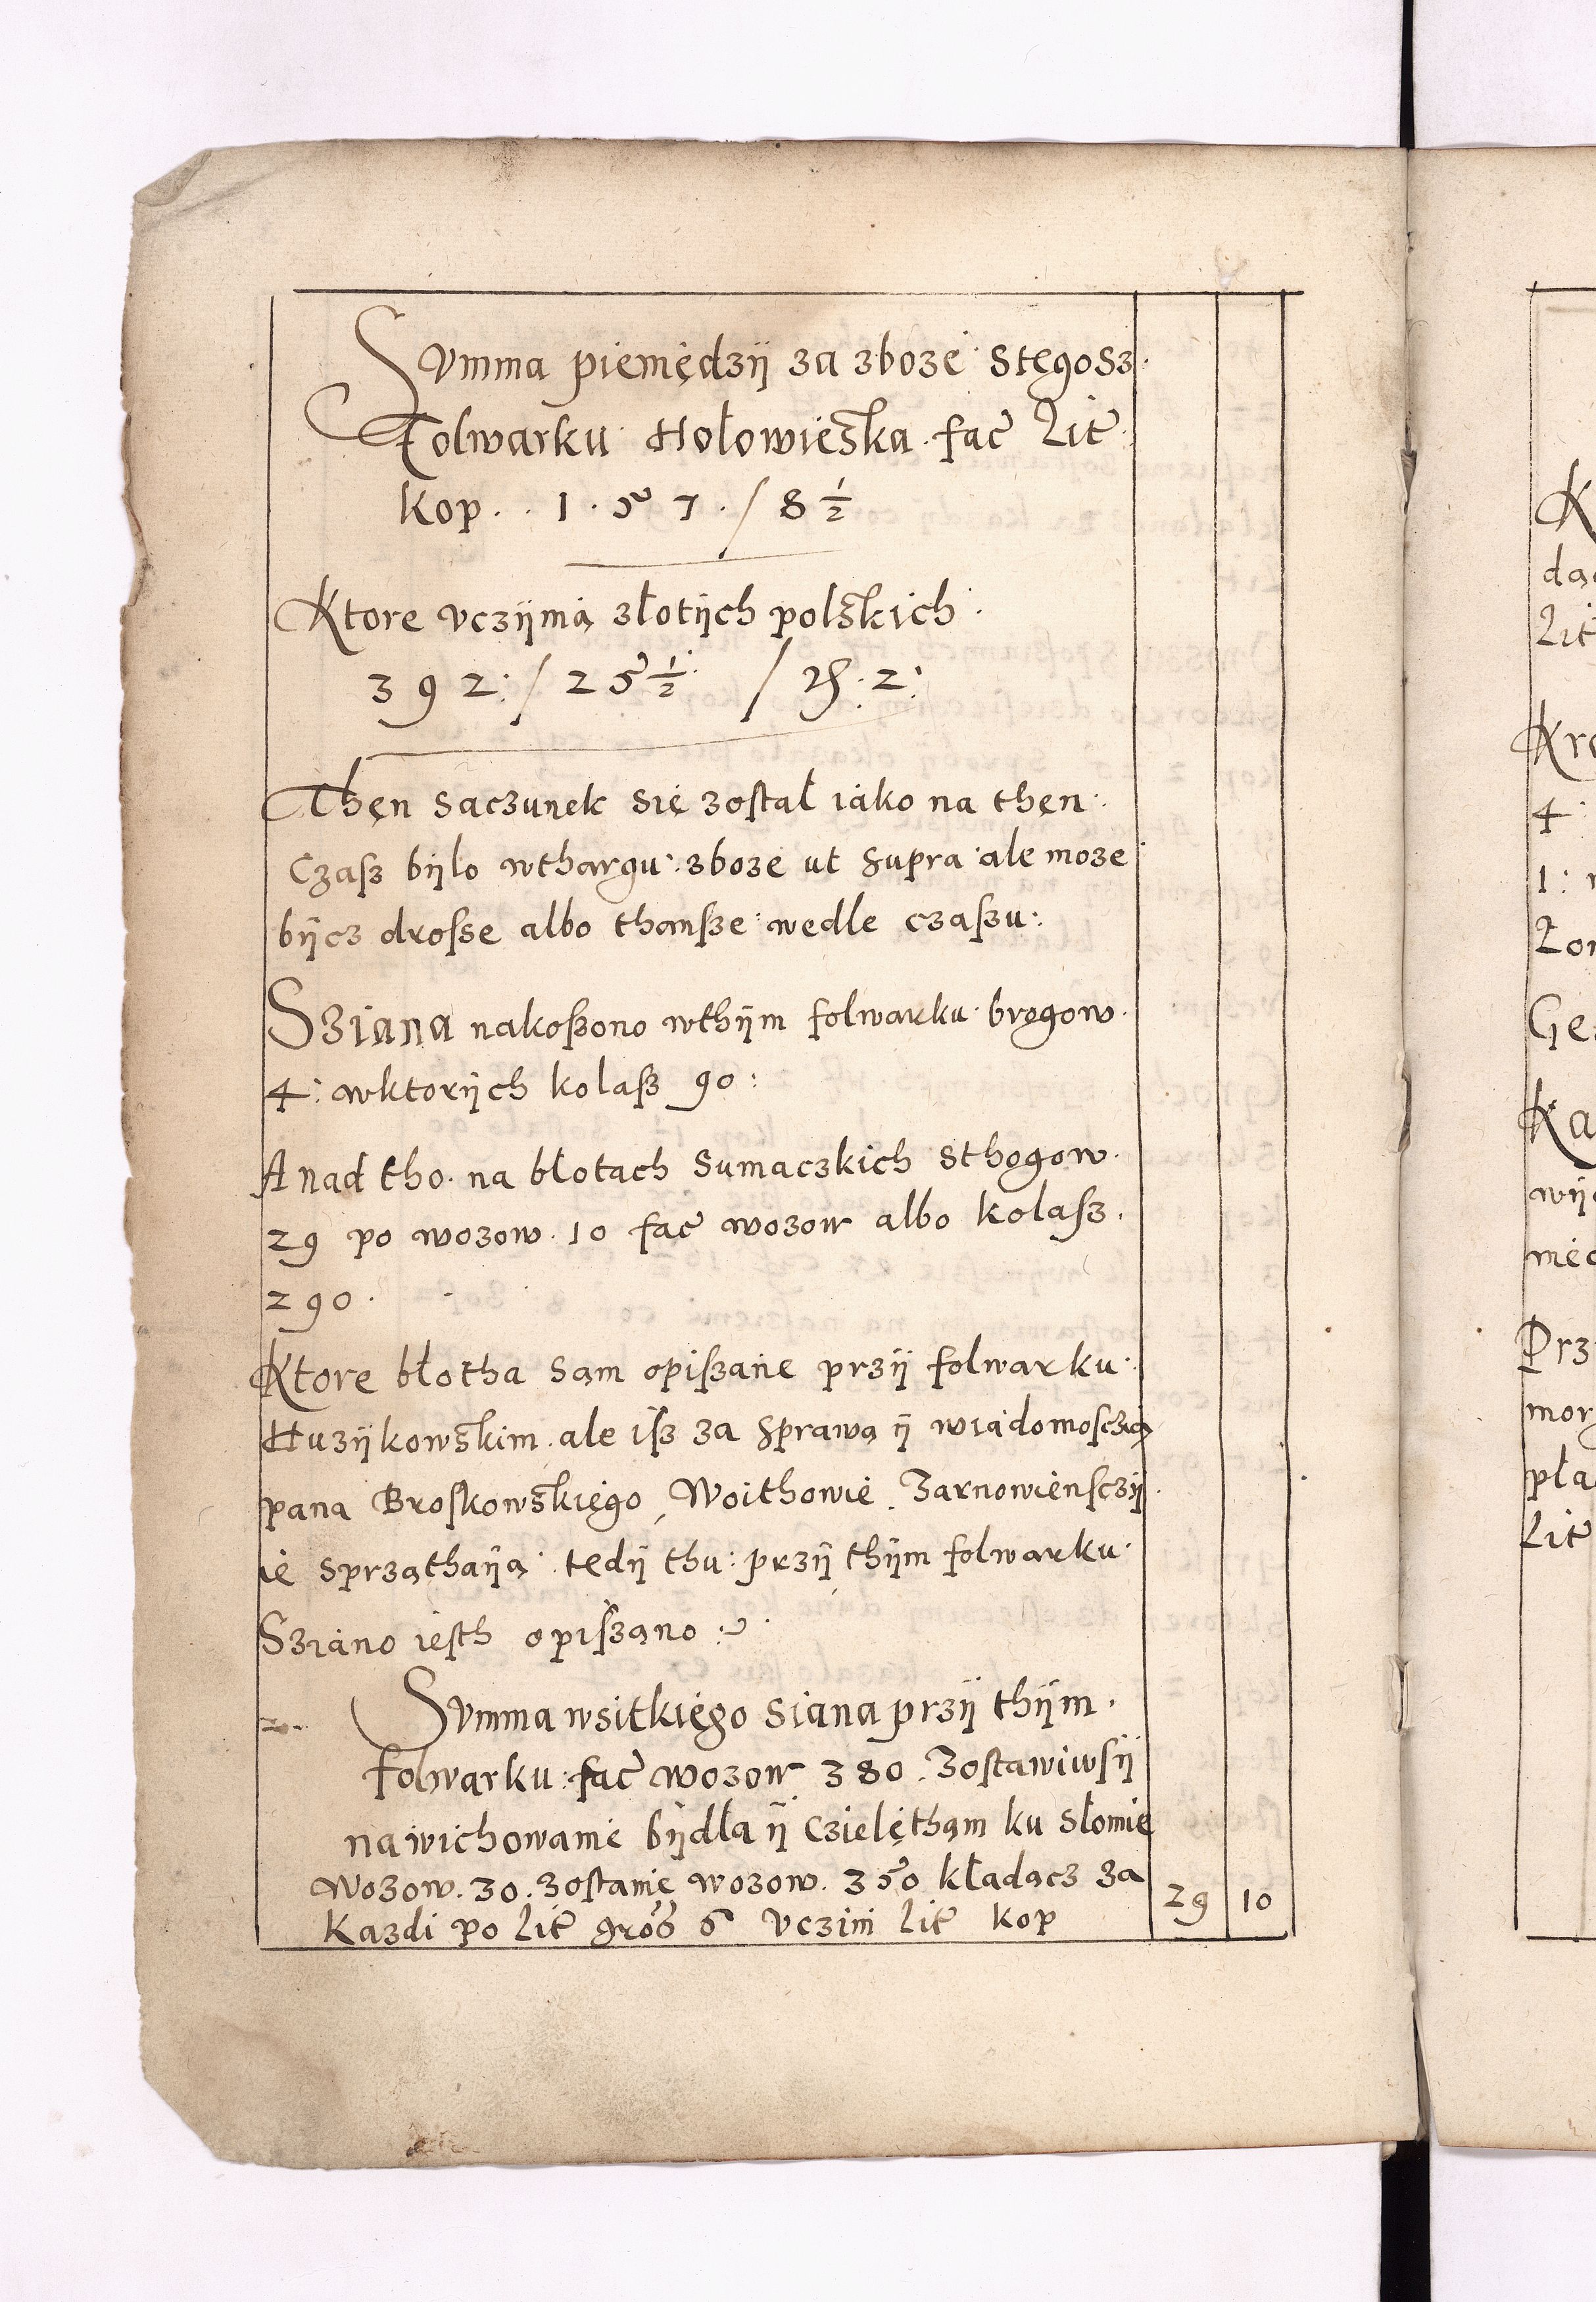 Summa pieniędzÿ za zboze stęgosz
Folwarku Hołowieska fac̃ Lit̃
kop . . 1 . 5 7 . / 8 ½
Ktore vczÿnią złotÿch polskich
3 9 2 : / 2 5 ½ / 2 :
Thęn saczunek się został iako na thęn
Czasz bÿlo wthargu zboze ut supra ale moze
bÿcz drosse albo thansze wedle czaszu :
Sziana nakoszono wthÿm folwarku brogow
4 : wktorÿch kolasz 90 :
A nad tho na błotach Sumaczkich Sthogow
29 po wozow 10 fac̃ wozow albo kolasz
290 .
Ktore błotha sąm opiszane przÿ folwarku
Huzÿkowskim ale isz za sprawą ÿ wiadomosczią
pana Broskowskiego Woithowie Zarnowiensczÿ
ie sprzathaÿą tedÿ thu przÿ thÿm folwarku
Sziano iesth opiszano
Summa wsitkiego siana przÿ thÿm
folwarku fac̃ wozow 380 Zostawiwsÿ
na wichowanie bÿdła ÿ Czielęthąm ku słomie
Wozow 30 zostanie wozow 350 kładącz za
Kazdi po Lit̃ 6 vczini Lit̃ kop 29 10
K
Lit
Kre
4
1 :
Ge
Ka
Prz
Lit̃